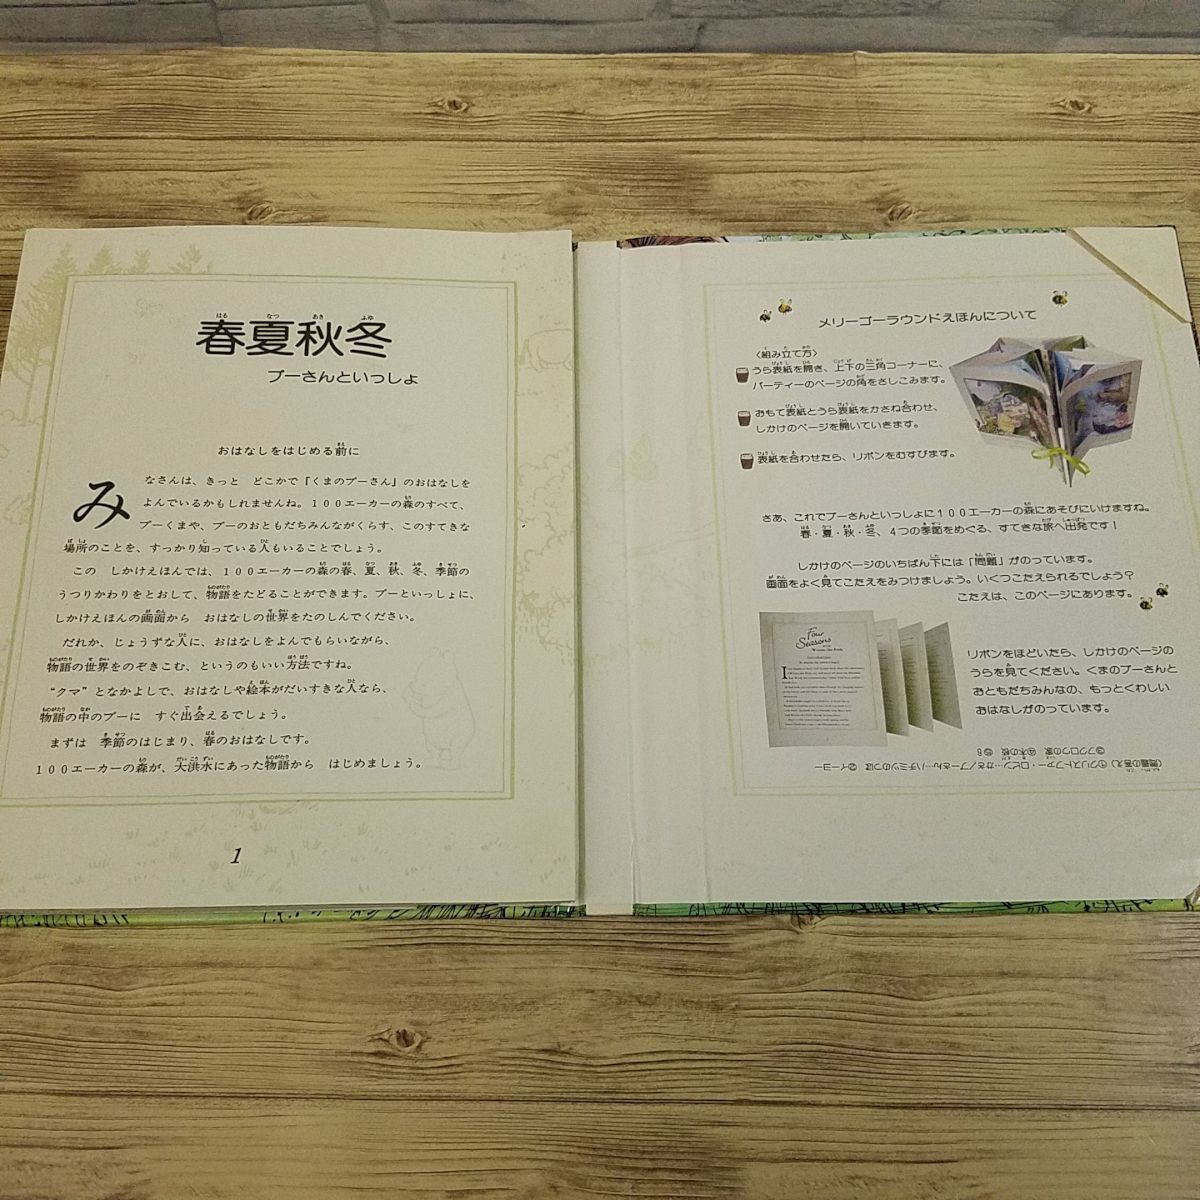 春夏秋冬
プーさんといっしょ
おはなしをはじめる前に
みなさんは、きっと どこかで『くまのプーさん』のおはなしを
よんでいるかもしれませんね。100エーカーの森のすべて、
プーくまや、プーのおともだちみんながくらす、このすてきな
場所のことを、すっかり知っている人もいることでしょう。
この しかけえほんでは、100エーカーの森の春、夏、秋、冬、季節の
うつりかわりをとおして、物語をたどることができます。プーといっしょに、
しかけえほんの画面から おはなしの世界をたのしんでください。
だれか、じょうずな人に、おはなしをよんでもらいながら、
物語の世界をのぞきこむ、というのもいい方法ですね。
“クマ”となかよしで、おはなしや絵本がだいすきな人なら、
物語の中のプーに すぐ出会えるでしょう。
まずは 季節のはじまり、春のおはなしです。
100エーカーの森が、大洪水にあった物語から はじめましょう。
1
メリーゴーラウンドえほんについて
〈組み立て方〉
うら表紙を開き、上下の三角コーナーに、
パーティーのページの角をさしこみます。
おもて表紙とうら表紙をかさね合わせ、
しかけのページを開いていきます。
表紙を合わせたら、リボンをむすびます。
さあ、これでプーさんといっしょに100エーカーの森にあそびにいけますね。
春・夏・秋・冬、4つの季節をめぐる、すてきな旅へ出発です！
しかけのページのいちばん下には「問題」がのっています。
画面をよく見てこたえをみつけましょう。いくつこたえられるでしょう？
こたえは、このページにあります。
Four
Seasons
リボンをほどいたら、しかけのページの
うらを見てください。くまのプーさんと
おともだちみんなの、もっとくわしい
おはなしがのっています。
(問題の答え) ①クリストファー・ロビン…かさ/プーさん…ハチミツのつぼ ②イーヨー
③フクロウの家 ④木の枝 ⑤8